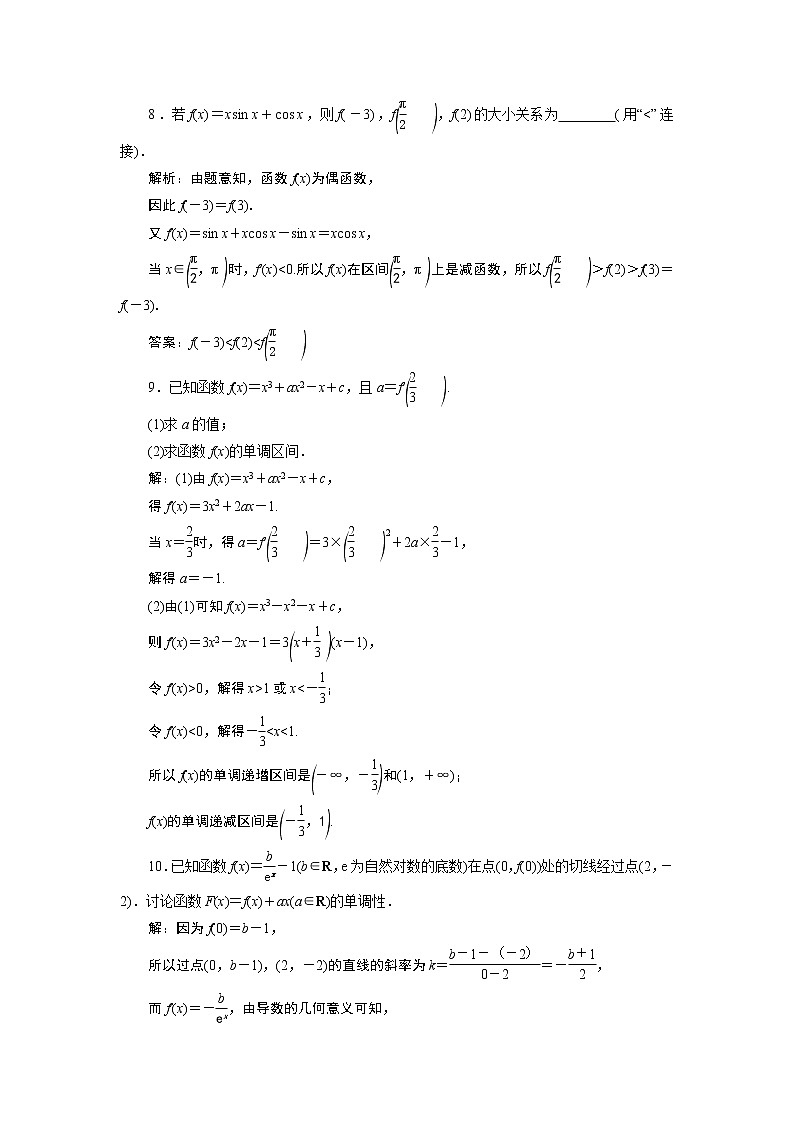 8．若 f(x)＝xsin x＋cos x，则 f(－3)，f(π/2)，f(2)的大小关系为________(用“<”连
接)．
解析：由题意知，函数 f(x)为偶函数，
因此 f(－3)＝f(3)．
又 f′(x)＝sin x＋xcos x－sin x＝xcos x，
当 x∈(π/2，π)时，f′(x)<0.所以 f(x)在区间(π/2，π)上是减函数，所以 f(π/2)＞f(2)＞f(3)＝
f(－3)．
答案：f(－3)<f(2)<f(π/2)
9．已知函数 f(x)＝x³＋ax²－x＋c，且 a＝f′(2/3).
(1)求 a 的值；
(2)求函数 f(x)的单调区间．
解：(1)由 f(x)＝x³＋ax²－x＋c，
得 f′(x)＝3x²＋2ax－1.
当 x＝2/3时，得 a＝f′(2/3)＝3×(2/3)²＋2a×2/3－1，
解得 a＝－1.
(2)由(1)可知 f(x)＝x³－x²－x＋c，
则 f′(x)＝3x²－2x－1＝3(x＋1/3)(x－1)，
令 f′(x)>0，解得 x>1 或 x<－1/3；
令 f′(x)<0，解得－1/3<x<1.
所以 f(x)的单调递增区间是(－∞，－1/3)和(1，＋∞)；
f(x)的单调递减区间是(－1/3，1).
10．已知函数 f(x)＝b/eˣ－1(b∈R，e 为自然对数的底数)在点(0，f(0))处的切线经过点(2，－
2)．讨论函数 F(x)＝f(x)＋ax(a∈R)的单调性．
解：因为 f(0)＝b－1，
所以过点(0，b－1)，(2，－2)的直线的斜率为 k＝b－1－（－2）/0－2＝－b＋1/2，
而 f′(x)＝－b/eˣ，由导数的几何意义可知，